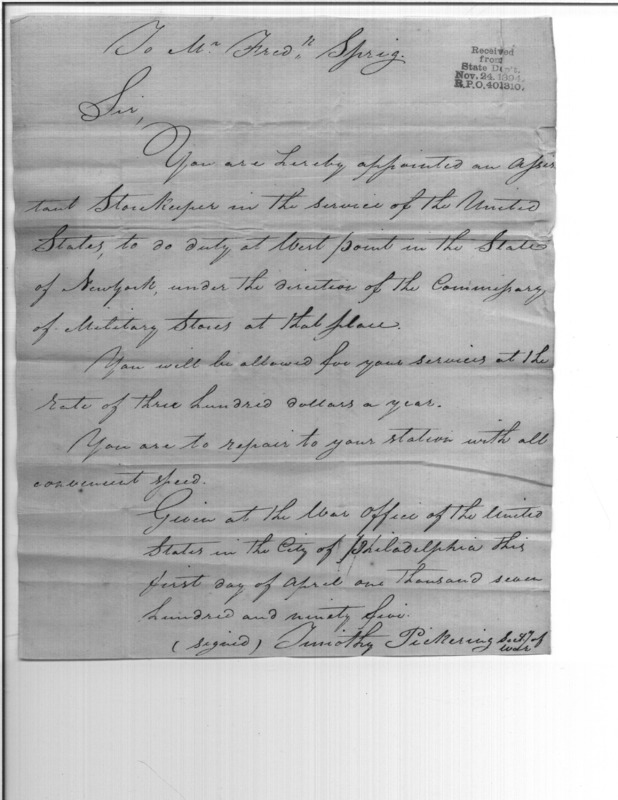 To Mr Fredk Sprig.
Received
from
State Dep't.
Nov. 24. 1894.
R.P.O. 401310.
Sir,
You are hereby appointed an Assis
tant Storekeeper in the service of the United
States, to do duty at West point in the State
of Newyork, under the direction of the Commissary
of Military Stores at that place.
You will be allowed for your services at the
rate of three hundred dollars a year.
You are to repair to your station with all
convenient speed.
Given at the War Office of the United
States in the City of Philadelphia this
first day of April one thousand seven
hundred and ninety five.
(signed) Timothy Pickering Secty of
War